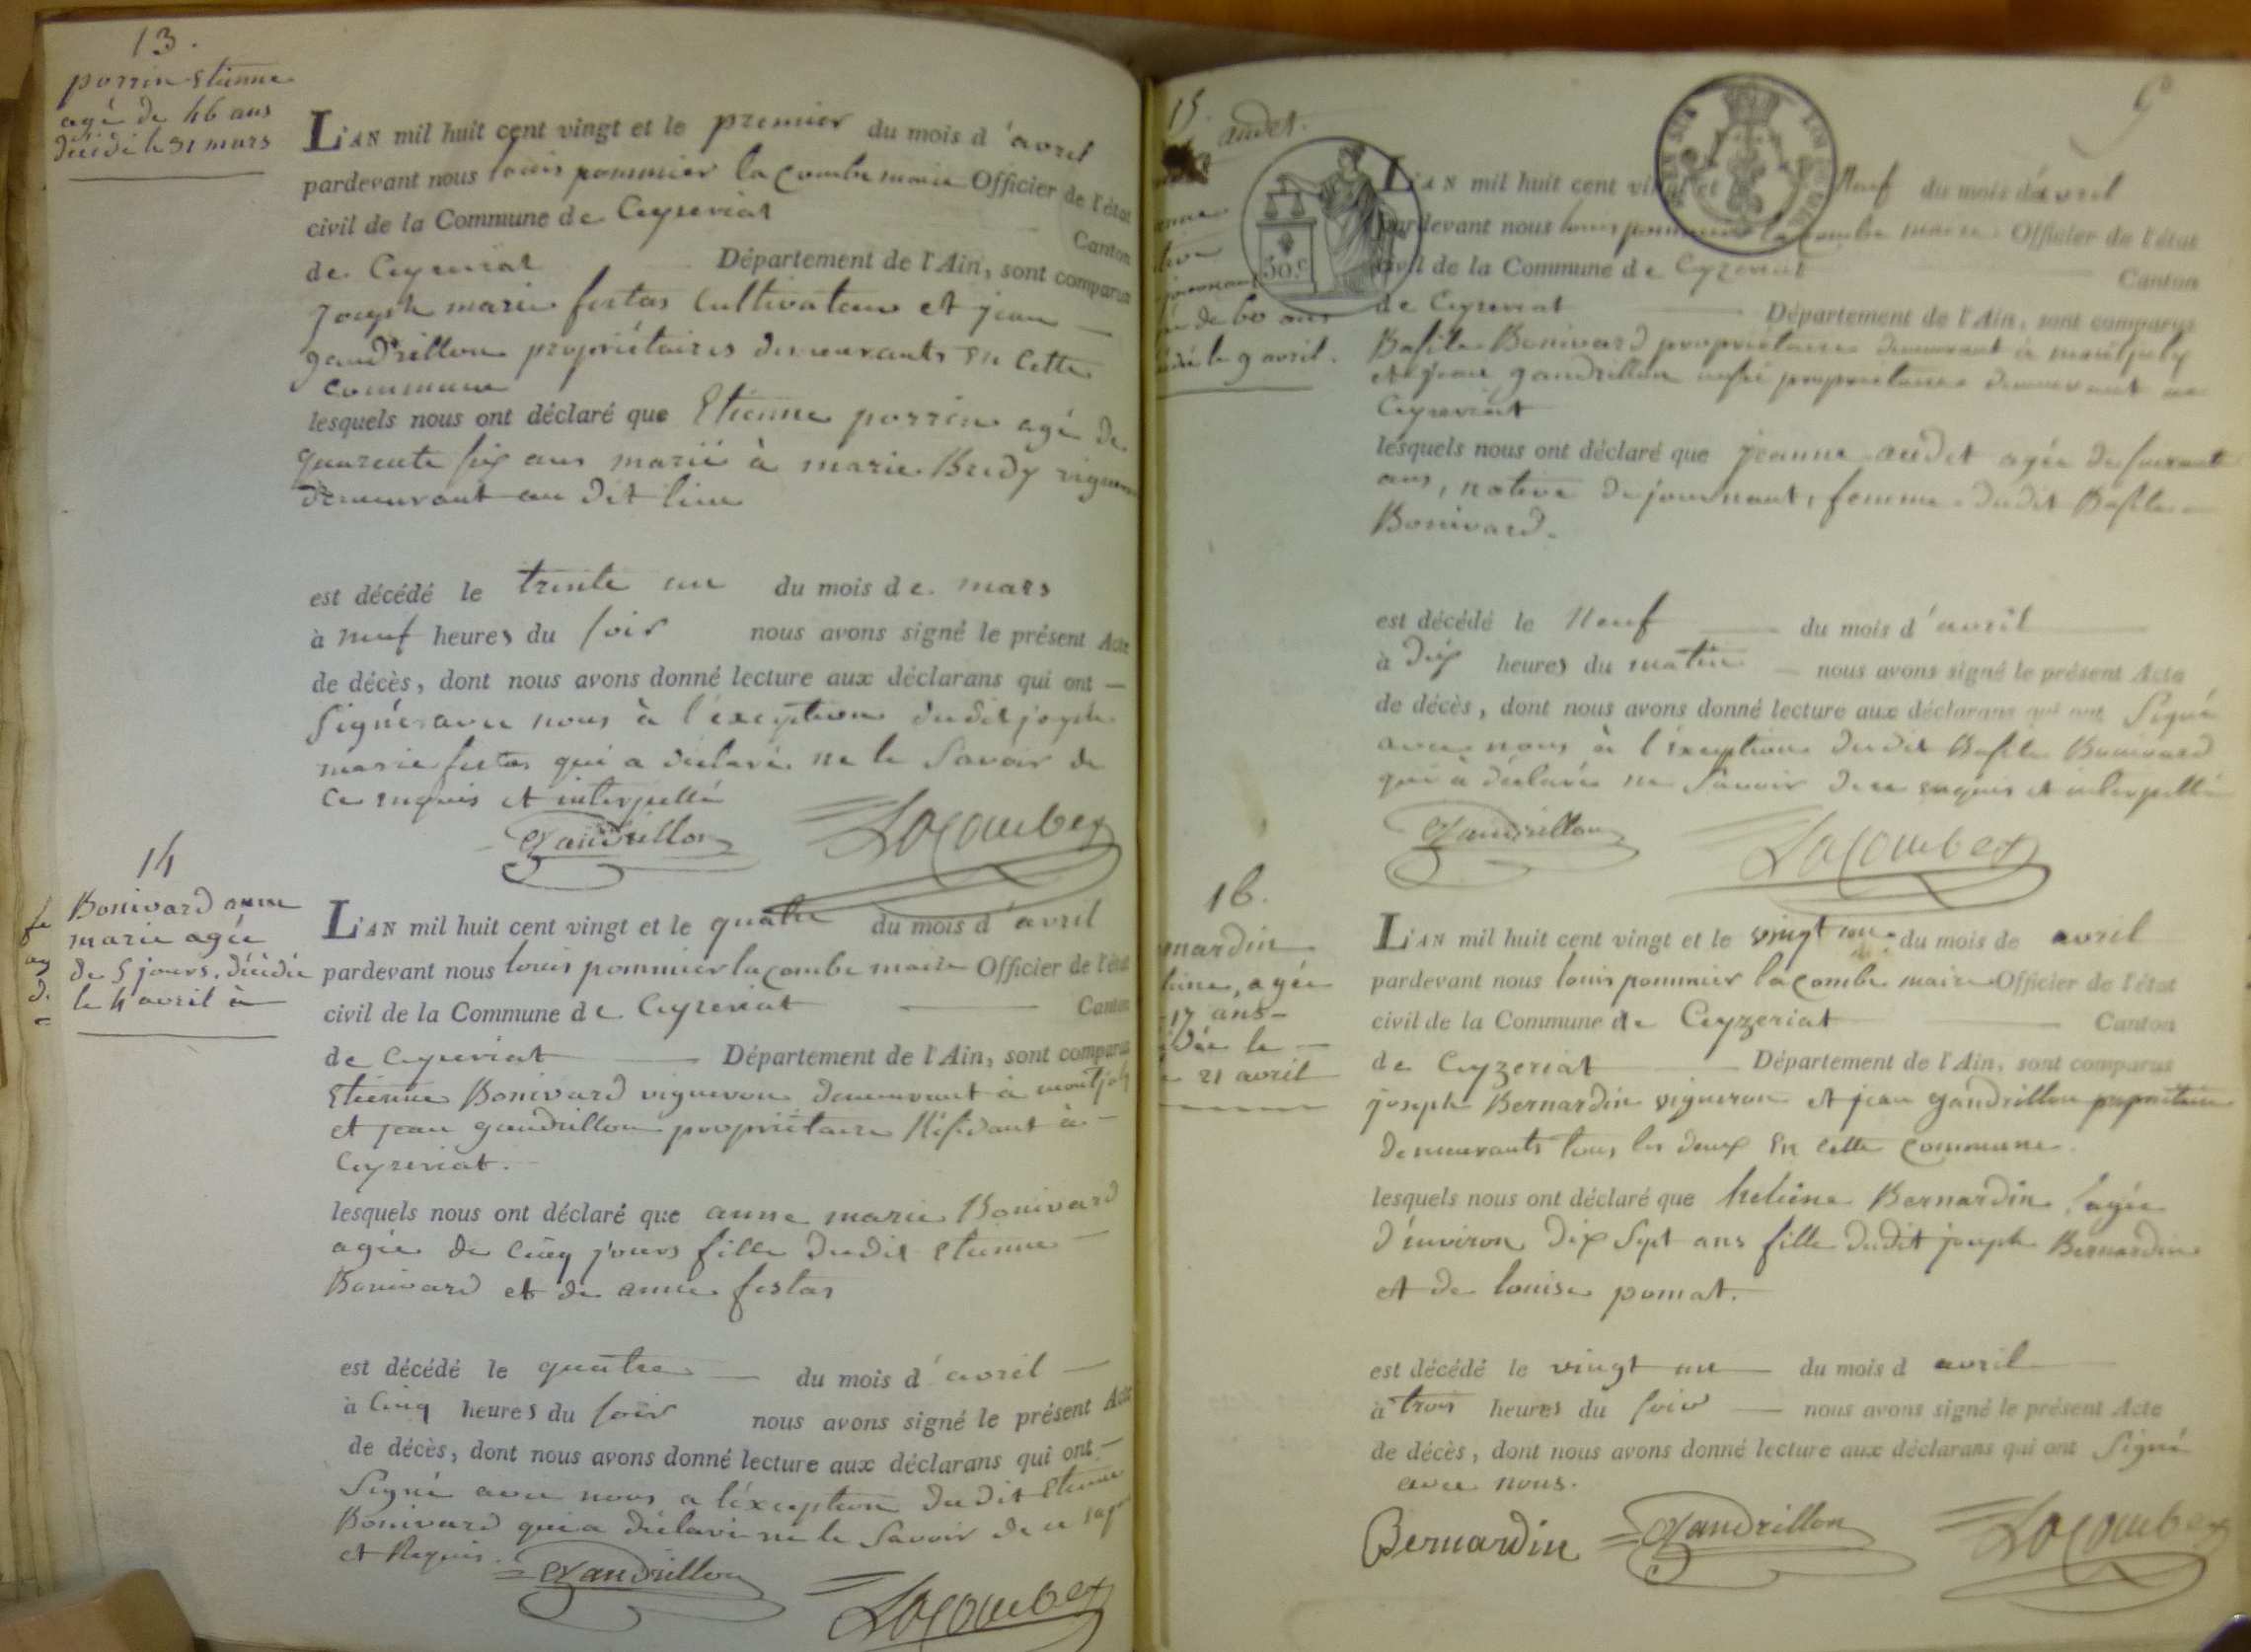 13.
perrin Etienne
agé de 46 ans
décédé le 31 mars
L'AN mil huit cent vingt et le premier du mois d'avril
pardevant nous louis pommier lacombe maire Officier de l'état
civil de la Commune de Ceyzeriat Canton
de Ceyzeriat Département de l'Ain, sont comparus
Joseph marie festas Cultivateur et jean
gandrillon propriétaires demeurants en cette
commune
lesquels nous ont déclaré que Etienne perrin agé de
quarente six ans marié à marie Bridy vigneron
demeurant au dit lieu
est décédé le trente un du mois de mars
à neuf heures du soir nous avons signé le présent Acte
de décès, dont nous avons donné lecture aux déclarans qui ont
signés avec nous à l'exception dudit joseph
marie festas qui a déclaré ne le savoir de
ce enquis et interpellé
Gandrillon Lacombe
14
Bonivard anne
marie agée
de 5 jours, décédée
le 4 avril à
L'AN mil huit cent vingt et le quatre du mois d'avril
pardevant nous louis pommier lacombe maire Officier de l'état
civil de la Commune de Ceyzeriat Canton
de Ceyzeriat Département de l'Ain, sont comparus
Etienne Bonivard vigneron demeurant à montjuly
et jean gandrillon propriétaire Résidant à
Ceyzeriat.
lesquels nous ont déclaré que anne marie Bonivard
agée de cinq jours fille dudit Etienne
Bonivard et de anne festas
est décédé le quatre du mois d'avril
à cinq heures du soir nous avons signé le présent Acte
de décès, dont nous avons donné lecture aux déclarans qui ont
Signé avec nous a l'éxception dudit Etienne
Bonivard qui a déclaré ne le savoir de ce
et Requis.
Gandrillon Lacombe
15.
audet.
de 60 ans
le 9 avril.
50.c
L'AN mil huit cent vingt et Neuf du mois d'avril
pardevant nous louis pommier lacombe maire Officier de l'état
civil de la Commune de Ceyzeriat Canton
de Ceyzeriat Département de l'Ain, sont comparus
Basile Bonivard propriétaire demeurant à montjuly
et jean gandrillon aussi propriétaire demeurant a
Ceyzeriat
lesquels nous ont déclaré que jeanne audet agée de soixante
ans, native de journant, femme dudit Basile
Bonivard.
est décédé le Neuf du mois d'avril
à dix heures du matin nous avons signé le présent Acte
de décès, dont nous avons donné lecture aux déclarans qui ont Signé
avec nous à l'exception dudit Basile Bonivard
qui à déclaré ne savoir de ce enquis et interpellé
Gandrillon Lacombe
16.
nardin
agée
17 ans
le
21 avril
L'AN mil huit cent vingt et le vingt un du mois de avril
pardevant nous louis pommier lacombe maire Officier de l'état
civil de la Commune de Ceyzeriat Canton
de Ceyzeriat Département de l'Ain, sont comparus
joseph Bernardin vigneron et jean gandrillon propriétaire
demeurants tous les deux en cette commune.
lesquels nous ont déclaré que heleine Bernardin, agée
d'environ dix sept ans fille dudit joseph Bernardin
et de louise pomat.
est décédé le vingt un du mois d avril
à trois heures du soir nous avons signé le présent Acte
de décès, dont nous avons donné lecture aux déclarans qui ont Signé
avec nous.
Bernardin Gandrillon Lacombe